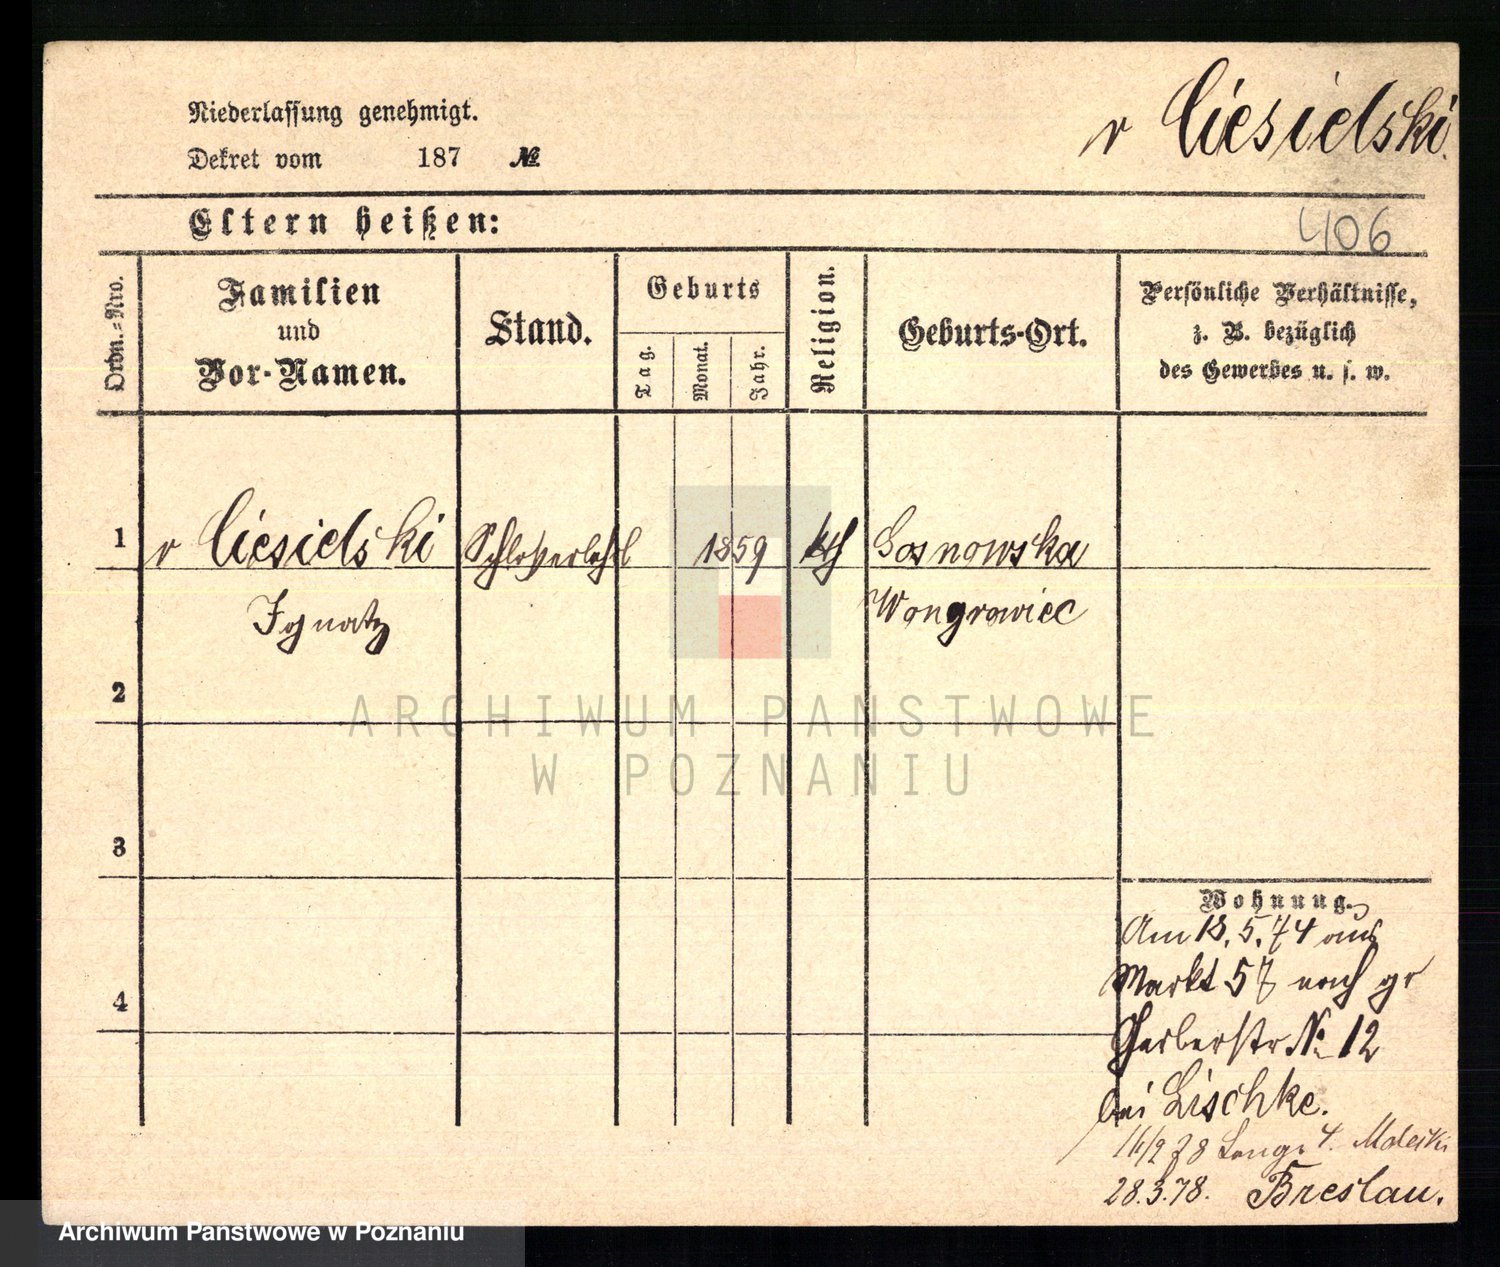 Niederlassung genehmigt.
Dekret vom 187 №
v Ciesielski.
Eltern heißen:
406
Ordn.-Nro.
Familien
und
Vor-Namen.
Stand.
Geburts
Tag.
Monat.
Jahr.
Religion.
Geburts-Ort.
Persönliche Verhältnisse,
z. B. bezüglich
des Gewerbes u. s. w.
1 v Ciesielski Schlosserlehrl 1859 kth Sosnowska
Ignatz Wongrowiec
2
3
4
Wohnung.
Am 18.5.74 aus
Markt 57 nach gr
Gerberstr № 12
bei Lischke.
78 Lange 4.
28.3.78. Breslau.
ARCHIWUM PAŃSTWOWE
W POZNANIU
Archiwum Państwowe w Poznaniu